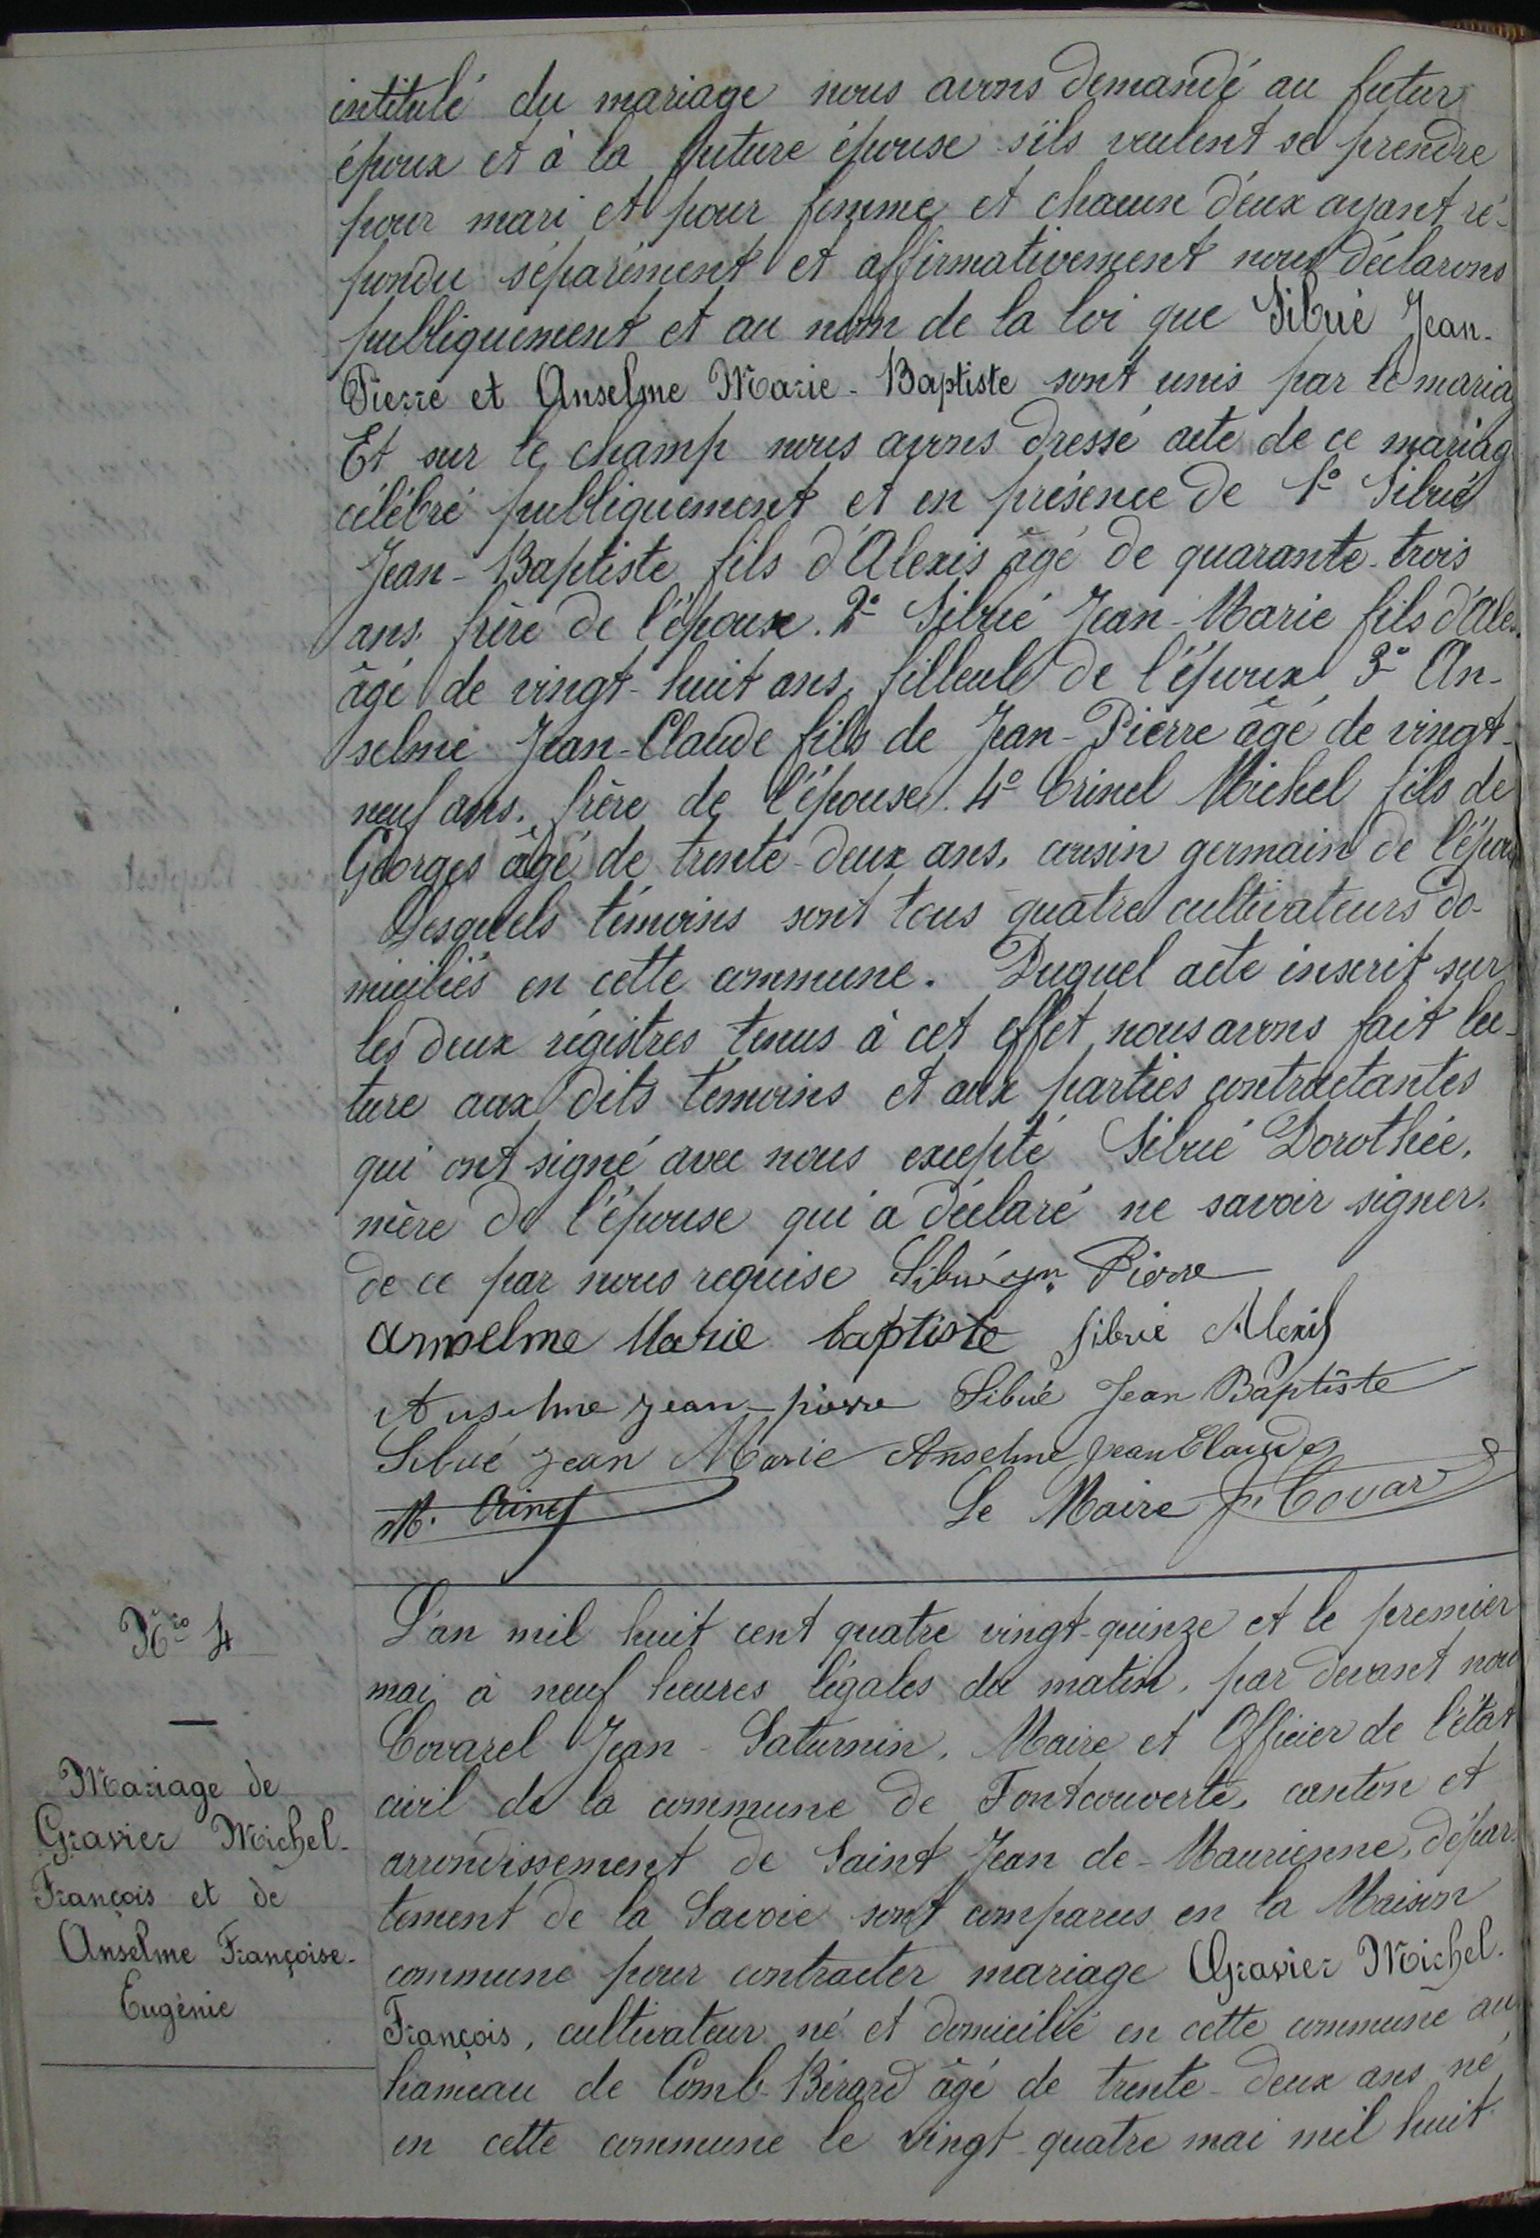 intitulé du mariage nous avons demandé au futur
époux et à la future épouse s'ils veulent se prendre
pour mari et pour femme et chacun d'eux ayant ré-
pondu séparément et affirmativement nous déclarons
publiquement et au nom de la loi que Sibué Jean-
Pierre et Anselme Marie-Baptiste sont unis par le mariag
Et sur le champ nous avons dressé acte de ce mariag
célébré publiquement et en présence de 1° Sibué
Jean-Baptiste fils d'Alexis âgé de quarante-trois
ans, frère de l'époux. 2° Sibué Jean-Marie fils d'Ale
âgé de vingt-huit ans, filleul de l'époux 3° An-
selme Jean-Claude fils de Jean-Pierre âgé de vingt-
neuf ans, frère de l'épouse. 4° Crinel Michel fils de
Georges âgé de trente-deux ans, cousin germain de l'épou
Lesquels témoins sont tous quatre cultivateurs do-
miciliés en cette commune. Duquel acte inscrit sur
les deux régistres tenus à cet effet nous avons fait lec-
ture aux dits témoins et aux parties contractantes
qui ont signé avec nous excepté Sibué Dorothée,
mère de l'épouse qui a déclaré ne savoir signer.
de ce par nous requise Sibué Jn Pierre
Anselme Marie baptiste Sibué Alexis
Anselme jean-pierre Sibué Jean Baptiste
Sibué jean Marie Anselme Jean Claude
M. Crinel Le Maire J. Covar
N.ro 4
Mariage de
Gravier Michel-
François et de
Anselme Françoise-
Eugénie
L'an mil huit cent quatre vingt-quinze et le premier
mai à neuf heures légales du matin, par devant nou
Covarel Jean-Saturnin, Maire et Officier de l'état
civil de la commune de Fontcouverte, canton et
arrondissement de Saint Jean de-Maurienne, dépar-
tement de la Savoie sont comparus en la Maison
commune pour contracter mariage Gravier Michel-
François, cultivateur né et domicilié en cette commune au
hameau de Comb-Bérard âgé de trente-deux ans né
en cette commune le vingt-quatre mai mil huit